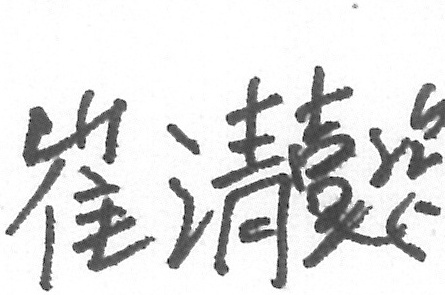 崔清懿